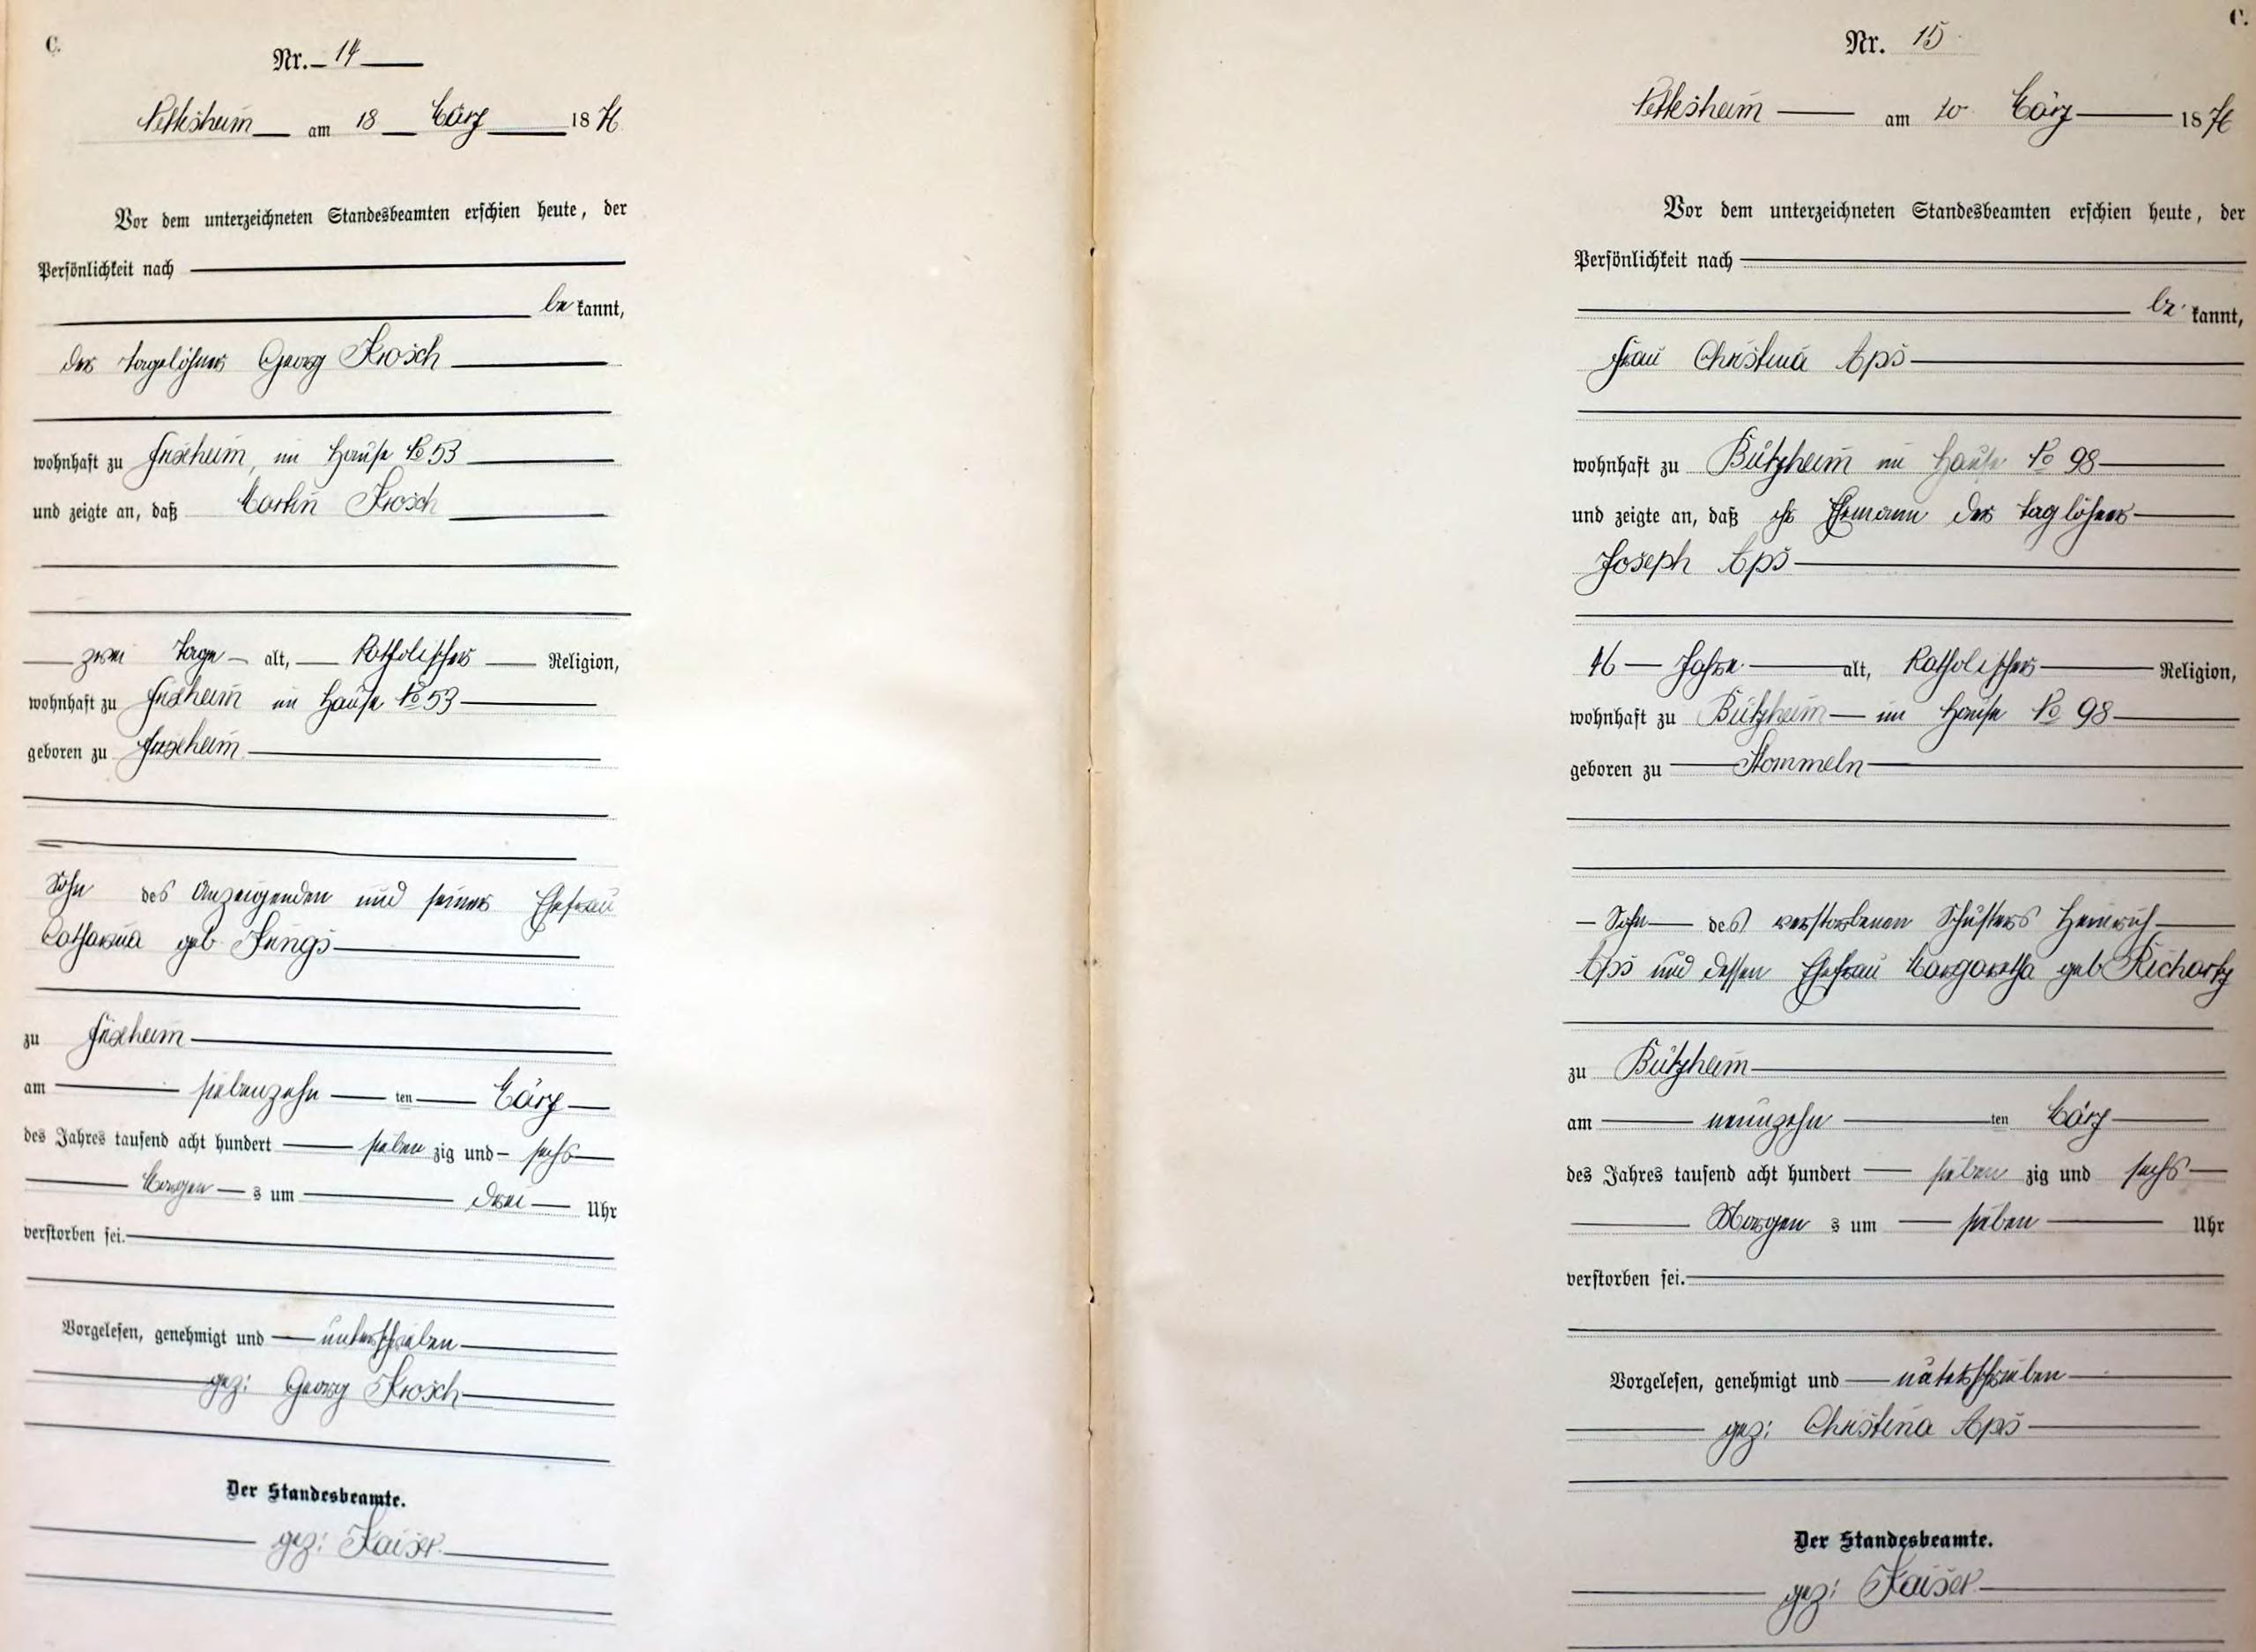 C.
Nr. 14
Nettesheim am 18 März 1876
Vor dem unterzeichneten Standesbeamten erschien heute, der
Persönlichkeit nach
be kannt,
der Tagelöhner Georg Krosch
wohnhaft zu Frixheim, im Hause No 53
und zeigte an, daß Martin Krosch
zwei Tage alt, Katholischer Religion,
wohnhaft zu Frixheim im Hause No 53
geboren zu Frixheim
Sohn des Anzeigenden und seiner Ehefrau
Catharina geb
zu Frixheim
am siebenzehn ten März
des Jahres tausend acht hundert sieben zig und sechs
Morgen s um drei Uhr
verstorben sei.
Vorgelesen, genehmigt und unterschrieben
gez: Georg Krosch
Der Standesbeamte.
gez: Kaiser
C.
Nr. 15
Nettesheim am 20 März 1876
Vor dem unterzeichneten Standesbeamten erschien heute, der
Persönlichkeit nach
be kannt,
Frau Christina Aps
wohnhaft zu Bützheim im Hause No 98
und zeigte an, daß ihr Ehemann der Taglöhner
Joseph Aps
46 Jahre alt, Katholischer Religion,
wohnhaft zu Bützheim im Hause No 98
geboren zu Stommeln
Sohn des verstorbenen Schusters Heinrich
Aps und dessen Ehefrau Margaretha geb Richartz
zu Bützheim
am neunzehn ten März
des Jahres tausend acht hundert sieben zig und sechs
Morgen s um sieben Uhr
verstorben sei.
Vorgelesen, genehmigt und unterschrieben
gez: Christina Aps
Der Standesbeamte.
gez: Kaiser